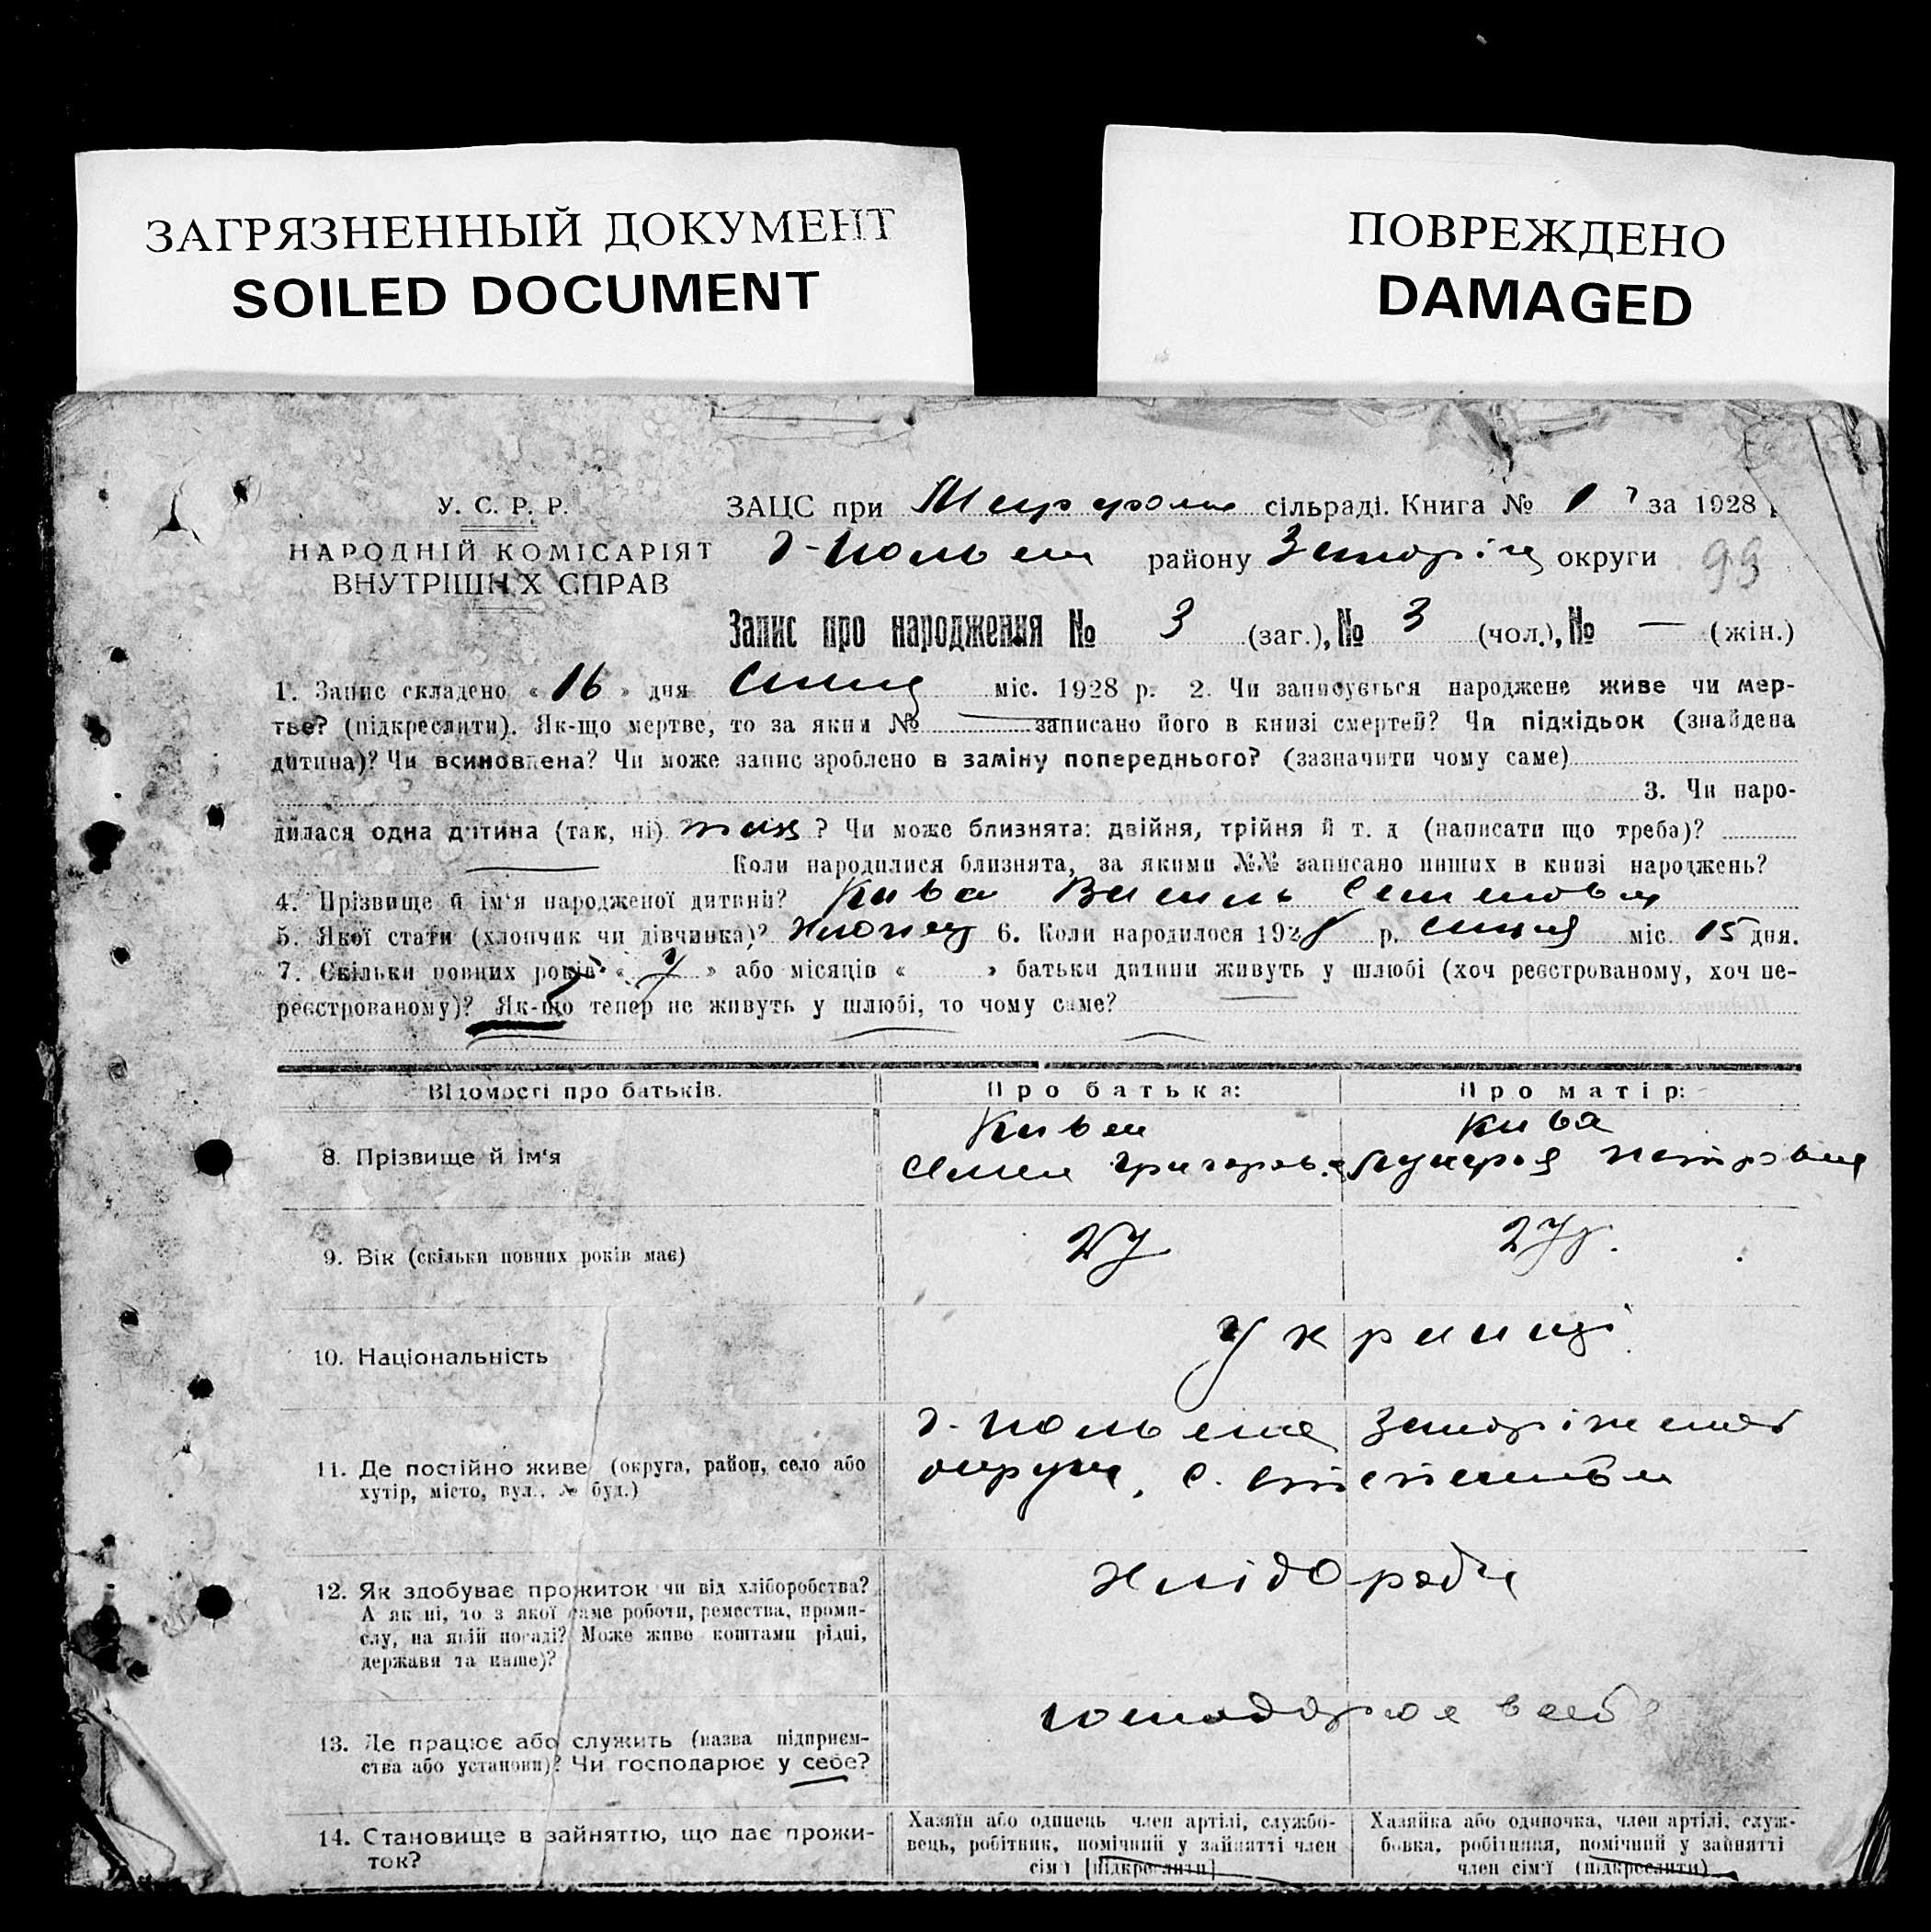 ЗАГРЯЗНЕННЫЙ ДОКУМЕНТ
SOILED DOCUMENT
ПОВРЕЖДЕНО
DAMAGED
У. С. Р. Р.
НАРОДНІЙ КОМІСАРІЯТ
ВНУТРІШНІХ СПРАВ
ЗАЦС при сільраді. Книга № 1 за 1928
району Запоріж округи 99
Запис про народження № 3 (заг.), № 3 (чол.), № — (жін.)
1. Запис складено « 16 » дня Січня міс. 1928 р. 2. Чи записується народжене живе чи мер-
тве? (підкреслити). Як-що мертве, то за яким № записано його в книзі смертей? Чи підкідьок (знайдена
дитина)? Чи всиновлена? Чи може запис зроблено в заміну попереднього? (зазначити чому саме)
3. Чи наро-
дилася одна дитина (так, ні) так ? Чи може близнята: двійня, трійня й т. д (написати що треба)?
Коли народилися близнята, за якими №№ записано инших в книзі народжень?
4. Прізвище й ім'я народженої дитини? Кива Василь Семенович
5. Якої стати (хлопчик чи дівчинка)? Хлопец 6. Коли народилося 1928 р. Січня міс. 15 дня.
7. Скільки повних років « 7 » або місяців « » батьки дитини живуть у шлюбі (хоч реєстрованому, хоч не-
реєстрованому)? Як-що тепер не живуть у шлюбі, то чому саме?
Відомості про батьків. Про батька: Про матір:
8. Прізвище й ім'я
Кива
Григоров.
Кива
Лукерія Петровна
9. Вік (скільки повних років має) 27 27 р.
10. Національність Українці
11. Де постійно живе (округа, район, село або
хутір, місто, вул., № буд.)
Г-Польске Запоріжской
округи, с.
12. Як здобуває прожиток чи від хліборобства?
А як ні, то з якої саме роботи, ремества, проми-
слу, на якій посаді? Може живе коштами рідні,
держави та инше)?
Хліборобч
13. Де працює або служить (назва підприєм-
ства або установи)? Чи господарює у себе?
господарює в себе
14. Становище в зайняттю, що дає прожи-
ток?
Хазяїн або одинець член артілі, службо-
вець, робітник, помічний у зайнятті член
сім'ї [підкреслити]
Хазяйка або одиночка, член артілі, служ-
бовка, робітниця, помічний у зайнятті
член сім'ї (підкреслити)